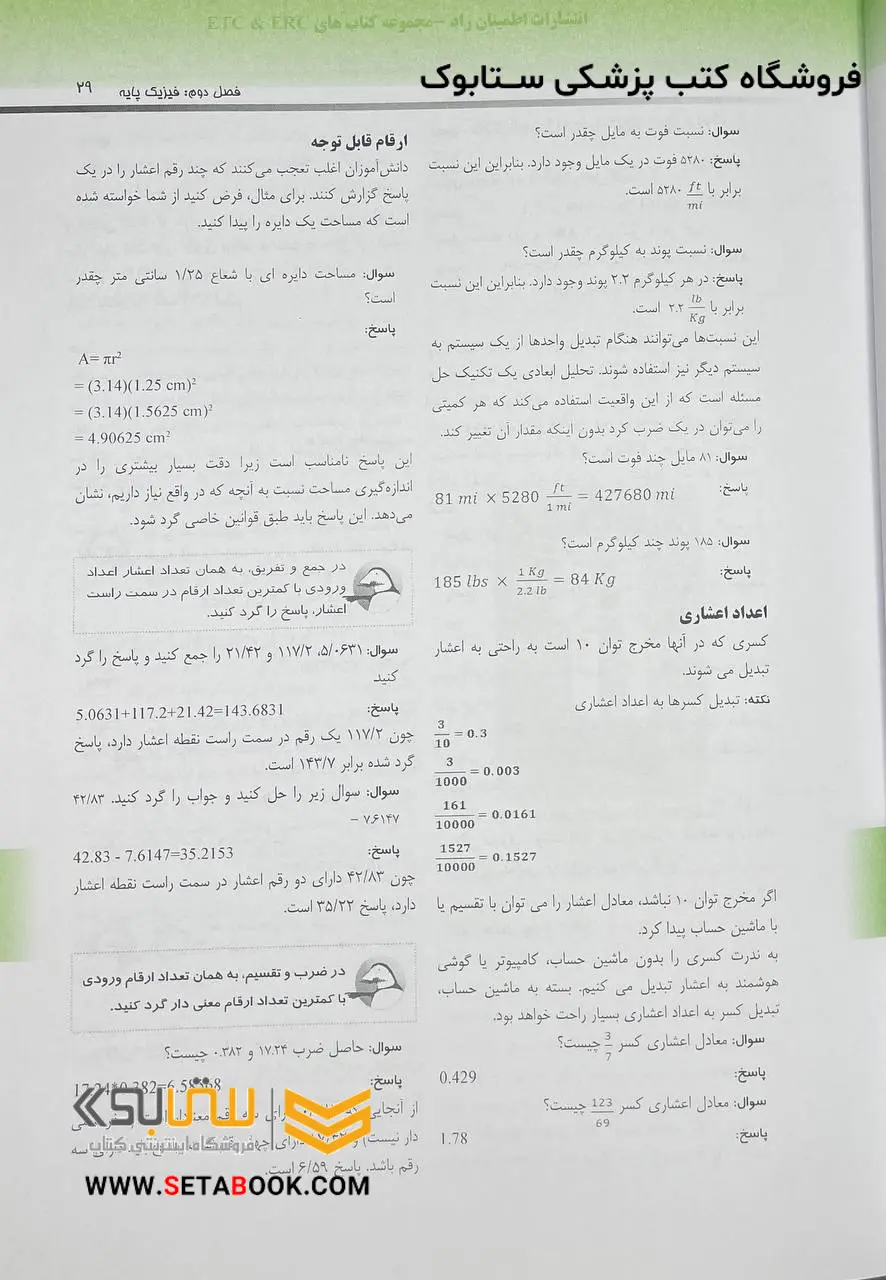 انتشارات اطمینان راد -مجموعه کتاب های ETC & ERC
فروشگاه کتب پزشکی ستابوک
فصل دوم: فیزیک پایه
۲۹
سوال: نسبت فوت به مایل چقدر است؟
پاسخ: ۵۲۸۰ فوت در یک مایل وجود دارد. بنابراین این نسبت
برابر با ft/mi ۵۲۸۰ است.
سوال: نسبت پوند به کیلوگرم چقدر است؟
پاسخ: در هر کیلوگرم ۲.۲ پوند وجود دارد. بنابراین این نسبت
برابر با lb/Kg ۲.۲ است.
این نسبت‌ها می‌توانند هنگام تبدیل واحدها از یک سیستم به
سیستم دیگر نیز استفاده شوند. تحلیل ابعادی یک تکنیک حل
مسئله است که از این واقعیت استفاده می‌کند که هر کمیتی
را می‌توان در یک ضرب کرد بدون اینکه مقدار آن تغییر کند.
سوال: ۸۱ مایل چند فوت است؟
پاسخ:
81 mi × 5280 ft/1 mi = 427680 mi
سوال: ۱۸۵ پوند چند کیلوگرم است؟
پاسخ:
185 lbs × 1 Kg/2.2 lb = 84 Kg
اعداد اعشاری
کسری که در آنها مخرج توان ۱۰ است به راحتی به اعشار
تبدیل می شوند.
نکته: تبدیل کسرها به اعداد اعشاری
3/10 = 0.3
3/1000 = 0.003
161/10000 = 0.0161
1527/10000 = 0.1527
اگر مخرج توان ۱۰ نباشد، معادل اعشار را می توان با تقسیم یا
با ماشین حساب پیدا کرد.
به ندرت کسری را بدون ماشین حساب، کامپیوتر یا گوشی
هوشمند به اعشار تبدیل می کنیم. بسته به ماشین حساب،
تبدیل کسر به اعداد اعشاری بسیار راحت خواهد بود.
سوال: معادل اعشاری کسر 3/7 چیست؟
پاسخ:
0.429
سوال: معادل اعشاری کسر 123/69 چیست؟
پاسخ:
1.78
ارقام قابل توجه
دانش‌آموزان اغلب تعجب می‌کنند که چند رقم اعشار را در یک
پاسخ گزارش کنند. برای مثال، فرض کنید از شما خواسته شده
است که مساحت یک دایره را پیدا کنید.
سوال: مساحت دایره ای با شعاع ۱/۲۵ سانتی متر چقدر
است؟
پاسخ:
A= πr²
= (3.14)(1.25 cm)²
= (3.14)(1.5625 cm)²
= 4.90625 cm²
این پاسخ نامناسب است زیرا دقت بسیار بیشتری را در
اندازه‌گیری مساحت نسبت به آنچه که در واقع نیاز داریم، نشان
می‌دهد. این پاسخ باید طبق قوانین خاصی گرد شود.
در جمع و تفریق، به همان تعداد اعشار اعداد
ورودی با کمترین تعداد ارقام در سمت راست
اعشار، پاسخ را گرد کنید.
سوال: ۵/۰۶۳۱، ۱۱۷/۲ و ۲۱/۴۲ را جمع کنید و پاسخ را گرد
کنید
پاسخ:
5.0631+117.2+21.42=143.6831
چون ۱۱۷/۲ یک رقم در سمت راست نقطه اعشار دارد، پاسخ
گرد شده برابر ۱۴۳/۷ است.
سوال: سوال زیر را حل کنید و جواب را گرد کنید. ۴۲/۸۳
۷.۶۱۴۷ –
پاسخ:
42.83 - 7.6147=35.2153
چون ۴۲/۸۳ دارای دو رقم اعشار در سمت راست نقطه اعشار
دارد، پاسخ ۳۵/۲۲ است.
در ضرب و تقسیم، به همان تعداد ارقام ورودی
با کمترین تعداد ارقام معنی دار گرد کنید.
سوال: حاصل ضرب ۱۷.۲۴ و ۰.۳۸۲ چیست؟
پاسخ:
17.24*0.382=6.58568
از آنجایی که
دار نیست) و
رقم باشد. پاسخ ۶/۵۹ است.
ستابوک
فروشگاه اینترنتی کتاب
WWW.SETABOOK.COM